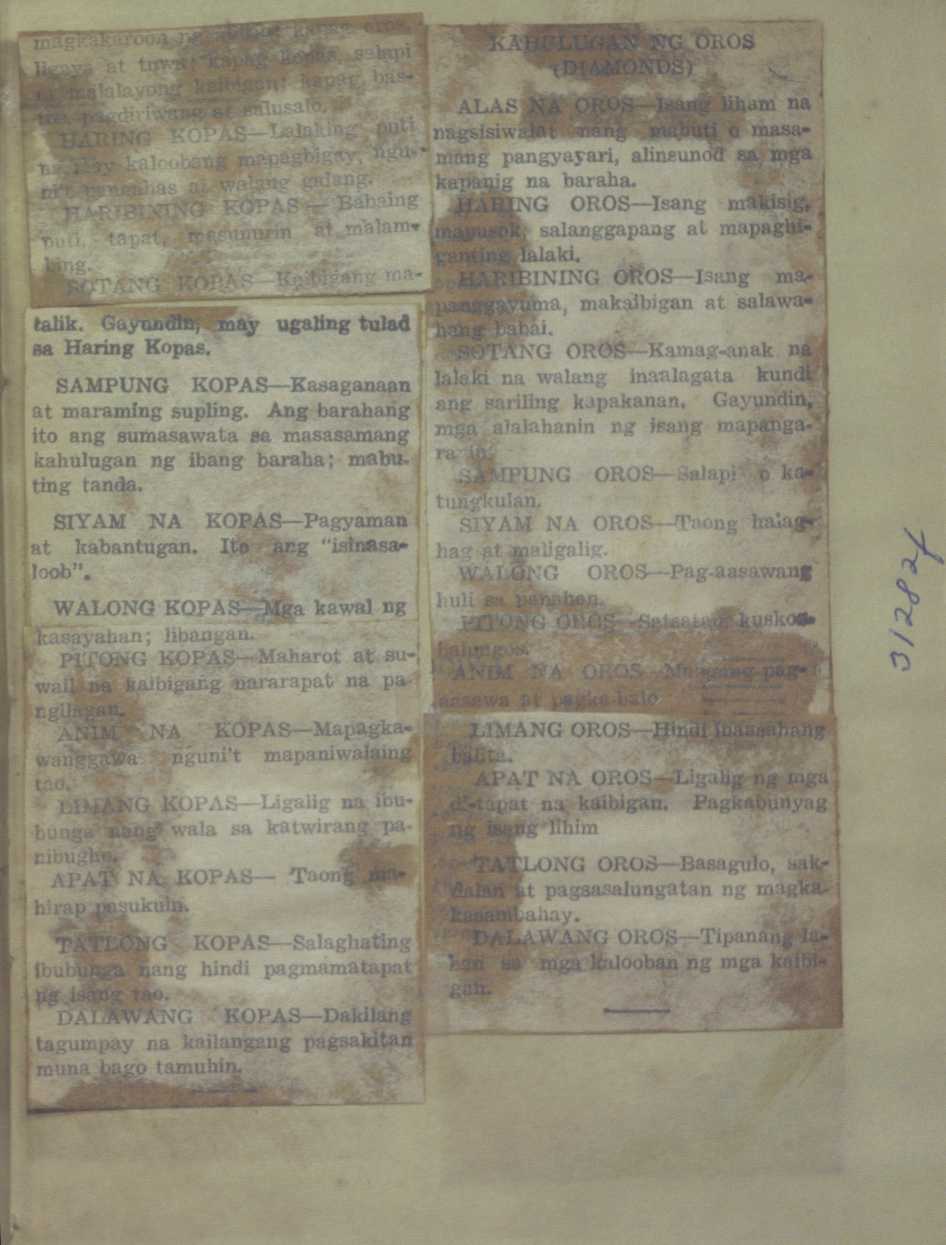 magkakaroon ng kapag oros,
ligaya at tuwa; kapag kopas, salapi
at malalayong kaibigan; kapag bas-
tos, pagdiriwang at salusalo.
HARING KOPAS—Lalaking puti
na may kaloobang mapagbigay, ngu-
ni't pangahas at walang galang.
HARIBINING KOPAS — Babaing
puti, tapat, masunurin at malam-
bing.
SOTANG KOPAS—Kaibigang ma-
talik. Gayundin, may ugaling tulad
sa Haring Kopas.
SAMPUNG KOPAS—Kasaganaan
at maraming supling. Ang barahang
ito ang sumasawata sa masasamang
kahulugan ng ibang baraha; mabu-
ting tanda.
SIYAM NA KOPAS—Pagyaman
at kabantugan. Ito ang “isinasa-
loob”.
WALONG KOPAS—Mga kawal ng
kasayahan; libangan.
PITONG KOPAS—Maharot at su-
wail na kaibigang nararapat na pa-
ngilagan.
ANIM NA KOPAS—Mapagka-
wanggawa nguni't mapaniwalaing
tao.
LIMANG KOPAS—Ligalig na ibu-
bunga nang wala sa katwirang pa-
nibugho.
APAT NA KOPAS— Taong ma-
hirap pasukuin.
TATLONG KOPAS—Salaghating
ibubunga nang hindi pagmamatapat
ng isang tao.
DALAWANG KOPAS—Dakilang
tagumpay na kailangang pagsakitan
muna bago tamuhin.
KAHULUGAN NG OROS
(DIAMONDS)
ALAS NA OROS—Isang liham na
nagsisiwalat nang mabuti o masa-
mang pangyayari, alinsunod sa mga
kapanig na baraha.
HARING OROS—Isang makisig,
mapusok, salanggapang at mapaghi-
ganting lalaki.
HARIBINING OROS—Isang ma-
panggayuma, makaibigan at salawa-
hang babai.
SOTANG OROS—Kamag-anak na
lalaki na walang inaalagata kundi
ang sariling kapakanan. Gayundin,
mga alalahanin ng isang mapanga-
rapin.
SAMPUNG OROS—Salapi o ka-
tungkulan.
SIYAM NA OROS—Taong halag-
hag at maligalig.
WALONG OROS—Pag-aasawang
huli sa panahon.
PITONG OROS—Satsatan, kuskos-
balungos.
ANIM NA OROS—Maagang pag-
aasawa at pagka-balo.
LIMANG OROS—Hindi inaasahang
balita.
APAT NA OROS—Ligalig ng mga
di-tapat na kaibigan. Pagkabunyag
ng isang lihim
TATLONG OROS—Basagulo, sak-
dalan at pagsasalungatan ng magka-
kasambahay.
DALAWANG OROS—Tipanang la-
ban sa mga kalooban ng mga kaibi-
gan.
31282f